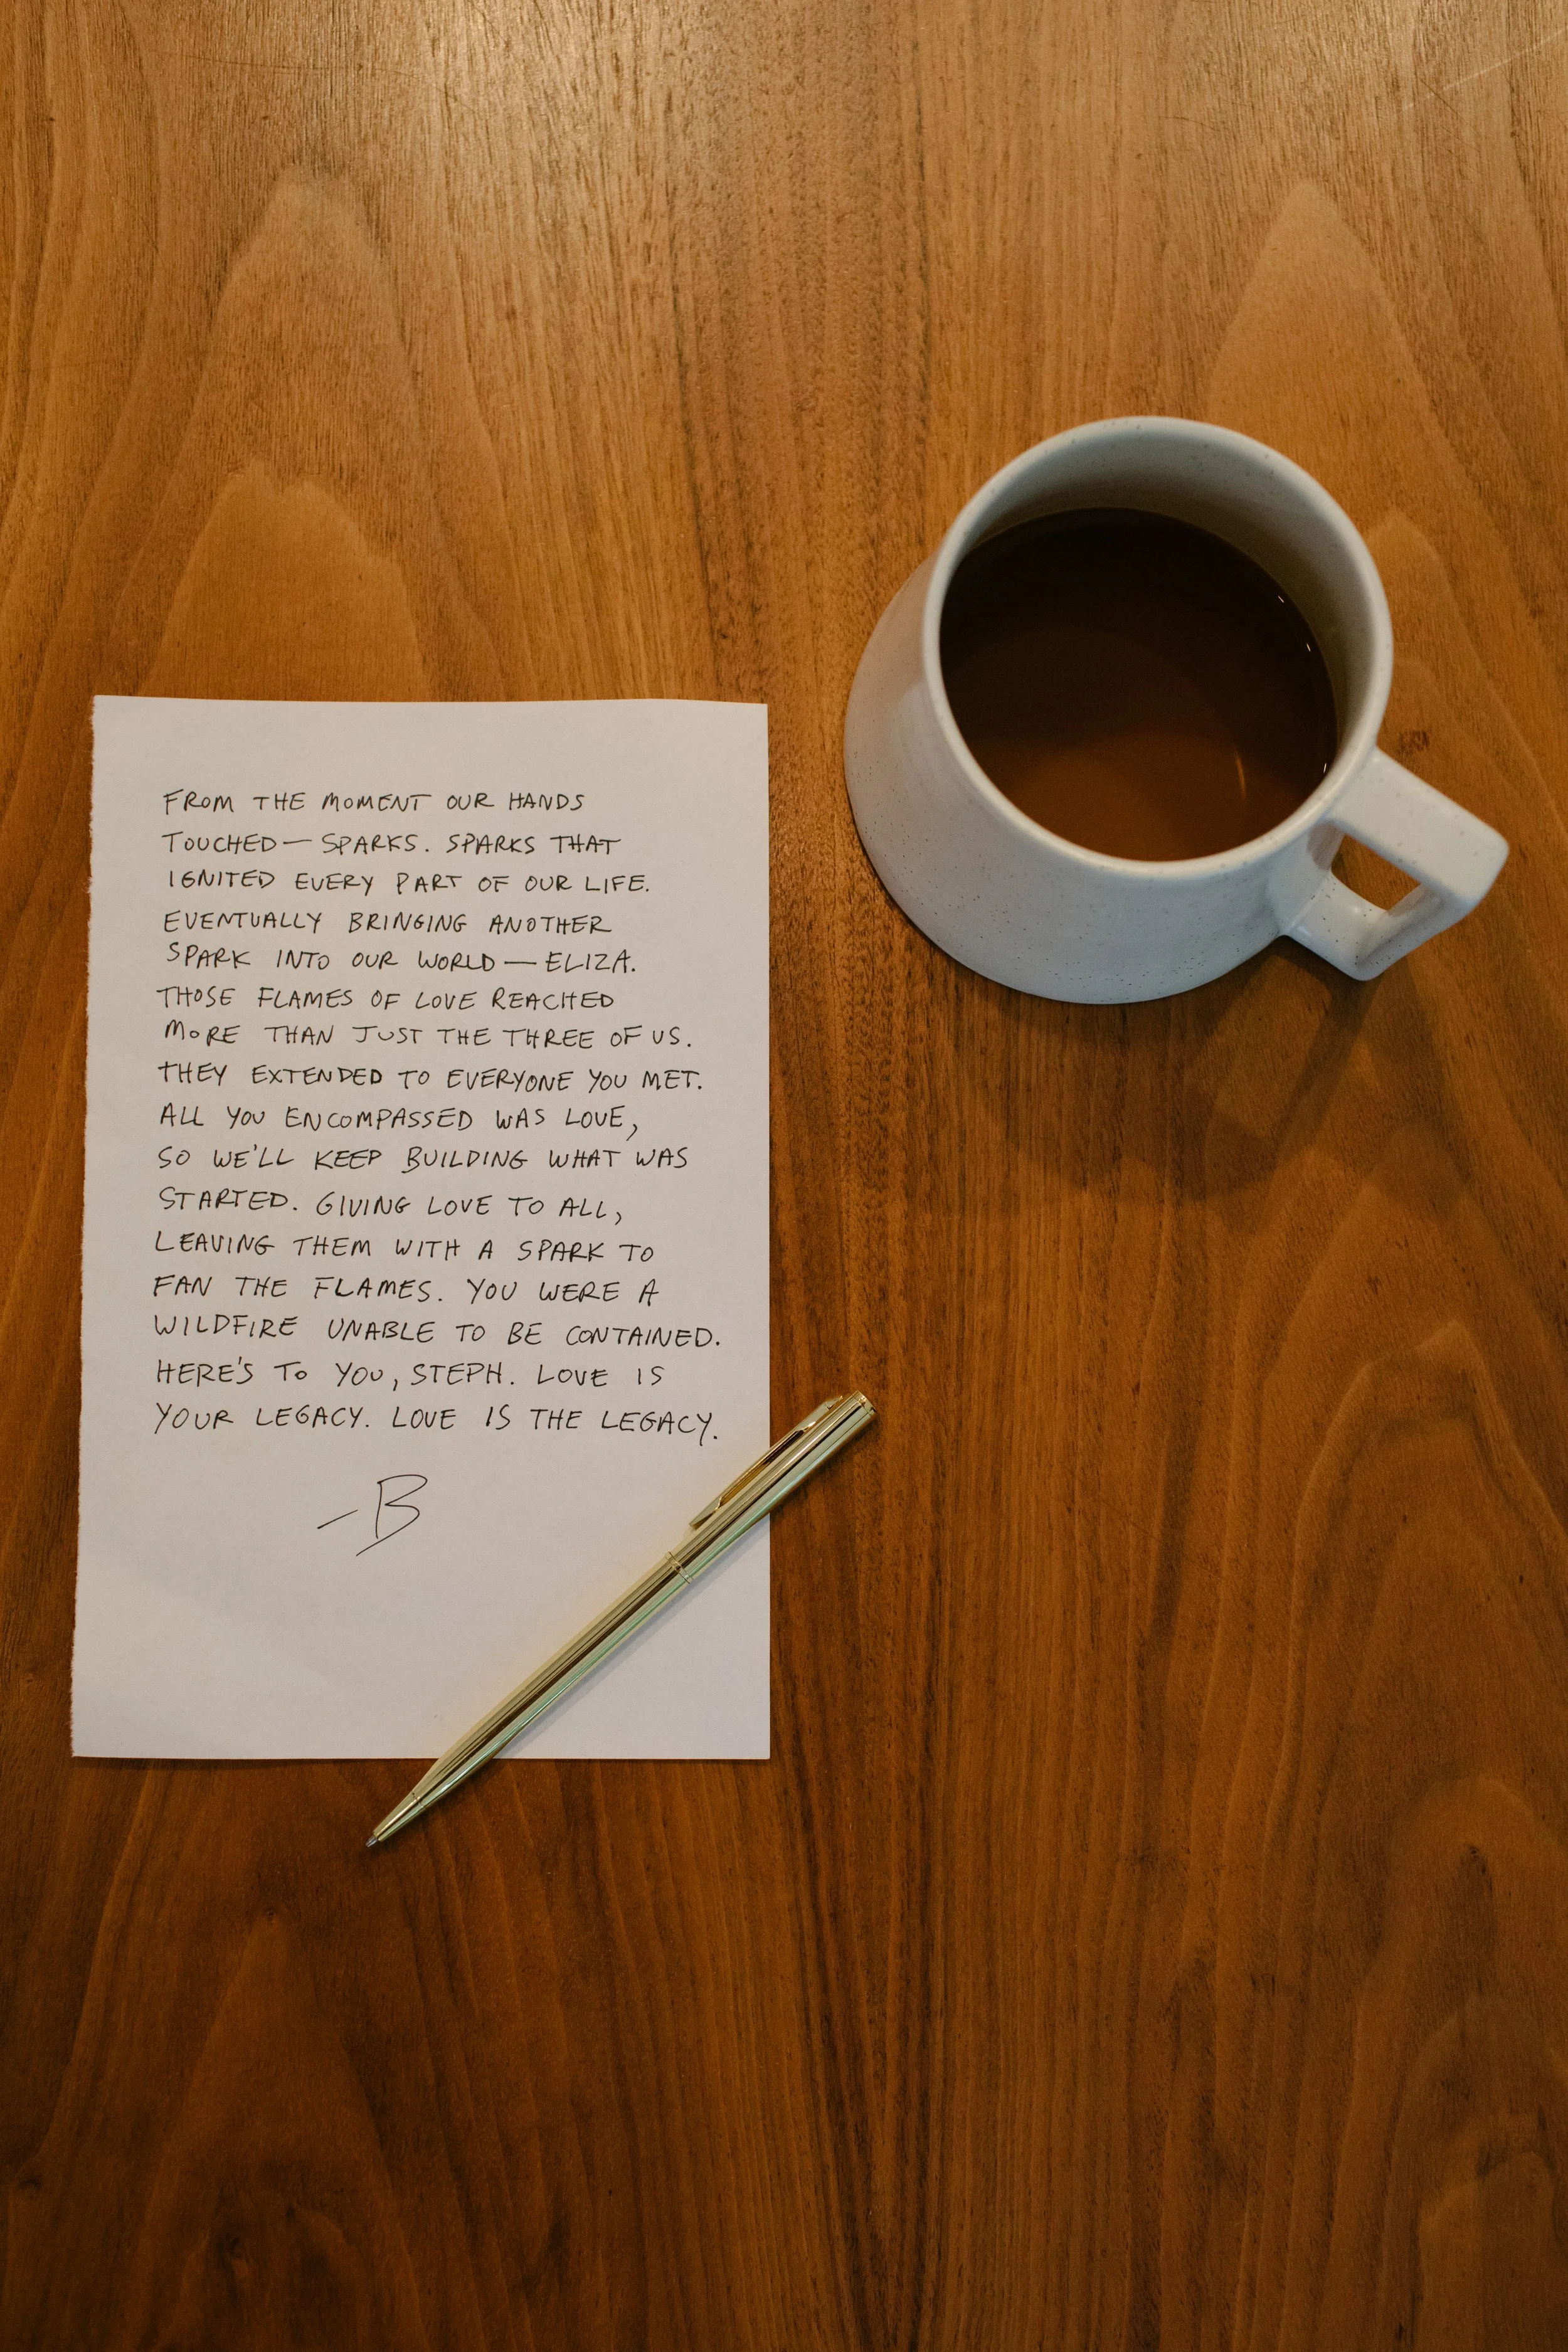 FROM THE MOMENT OUR HANDS
TOUCHED — SPARKS. SPARKS THAT
IGNITED EVERY PART OF OUR LIFE.
EVENTUALLY BRINGING ANOTHER
SPARK INTO OUR WORLD — ELIZA.
THOSE FLAMES OF LOVE REACHED
MORE THAN JUST THE THREE OF US.
THEY EXTENDED TO EVERYONE YOU MET.
ALL YOU ENCOMPASSED WAS LOVE,
SO WE'LL KEEP BUILDING WHAT WAS
STARTED. GIVING LOVE TO ALL,
LEAVING THEM WITH A SPARK TO
FAN THE FLAMES. YOU WERE A
WILDFIRE UNABLE TO BE CONTAINED.
HERE'S TO YOU, STEPH. LOVE IS
YOUR LEGACY. LOVE IS THE LEGACY.
—B